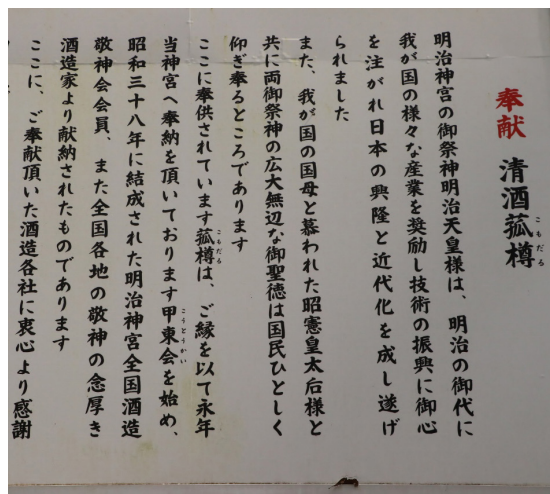 奉献　清酒菰樽
こもだる
明治神宮の御祭神明治天皇様は、明治の御代に
我が国の様々な産業を奨励し技術の振興に御心
を注がれ日本の興隆と近代化を成し遂げ
られました
また、我が国の国母と慕われた昭憲皇太后様と
共に両御祭神の広大無辺な御聖徳は国民ひとしく
仰ぎ奉るところであります
ここに奉供されています菰樽は、ご縁を以て永年
こもだる
当神宮へ奉納を頂いております甲東会を始め、
こうとうかい
昭和三十八年に結成された明治神宮全国酒造
敬神会会員、また全国各地の敬神の念厚き
酒造家より献納されたものであります
ここに、ご奉献頂いた酒造各社に衷心より感謝